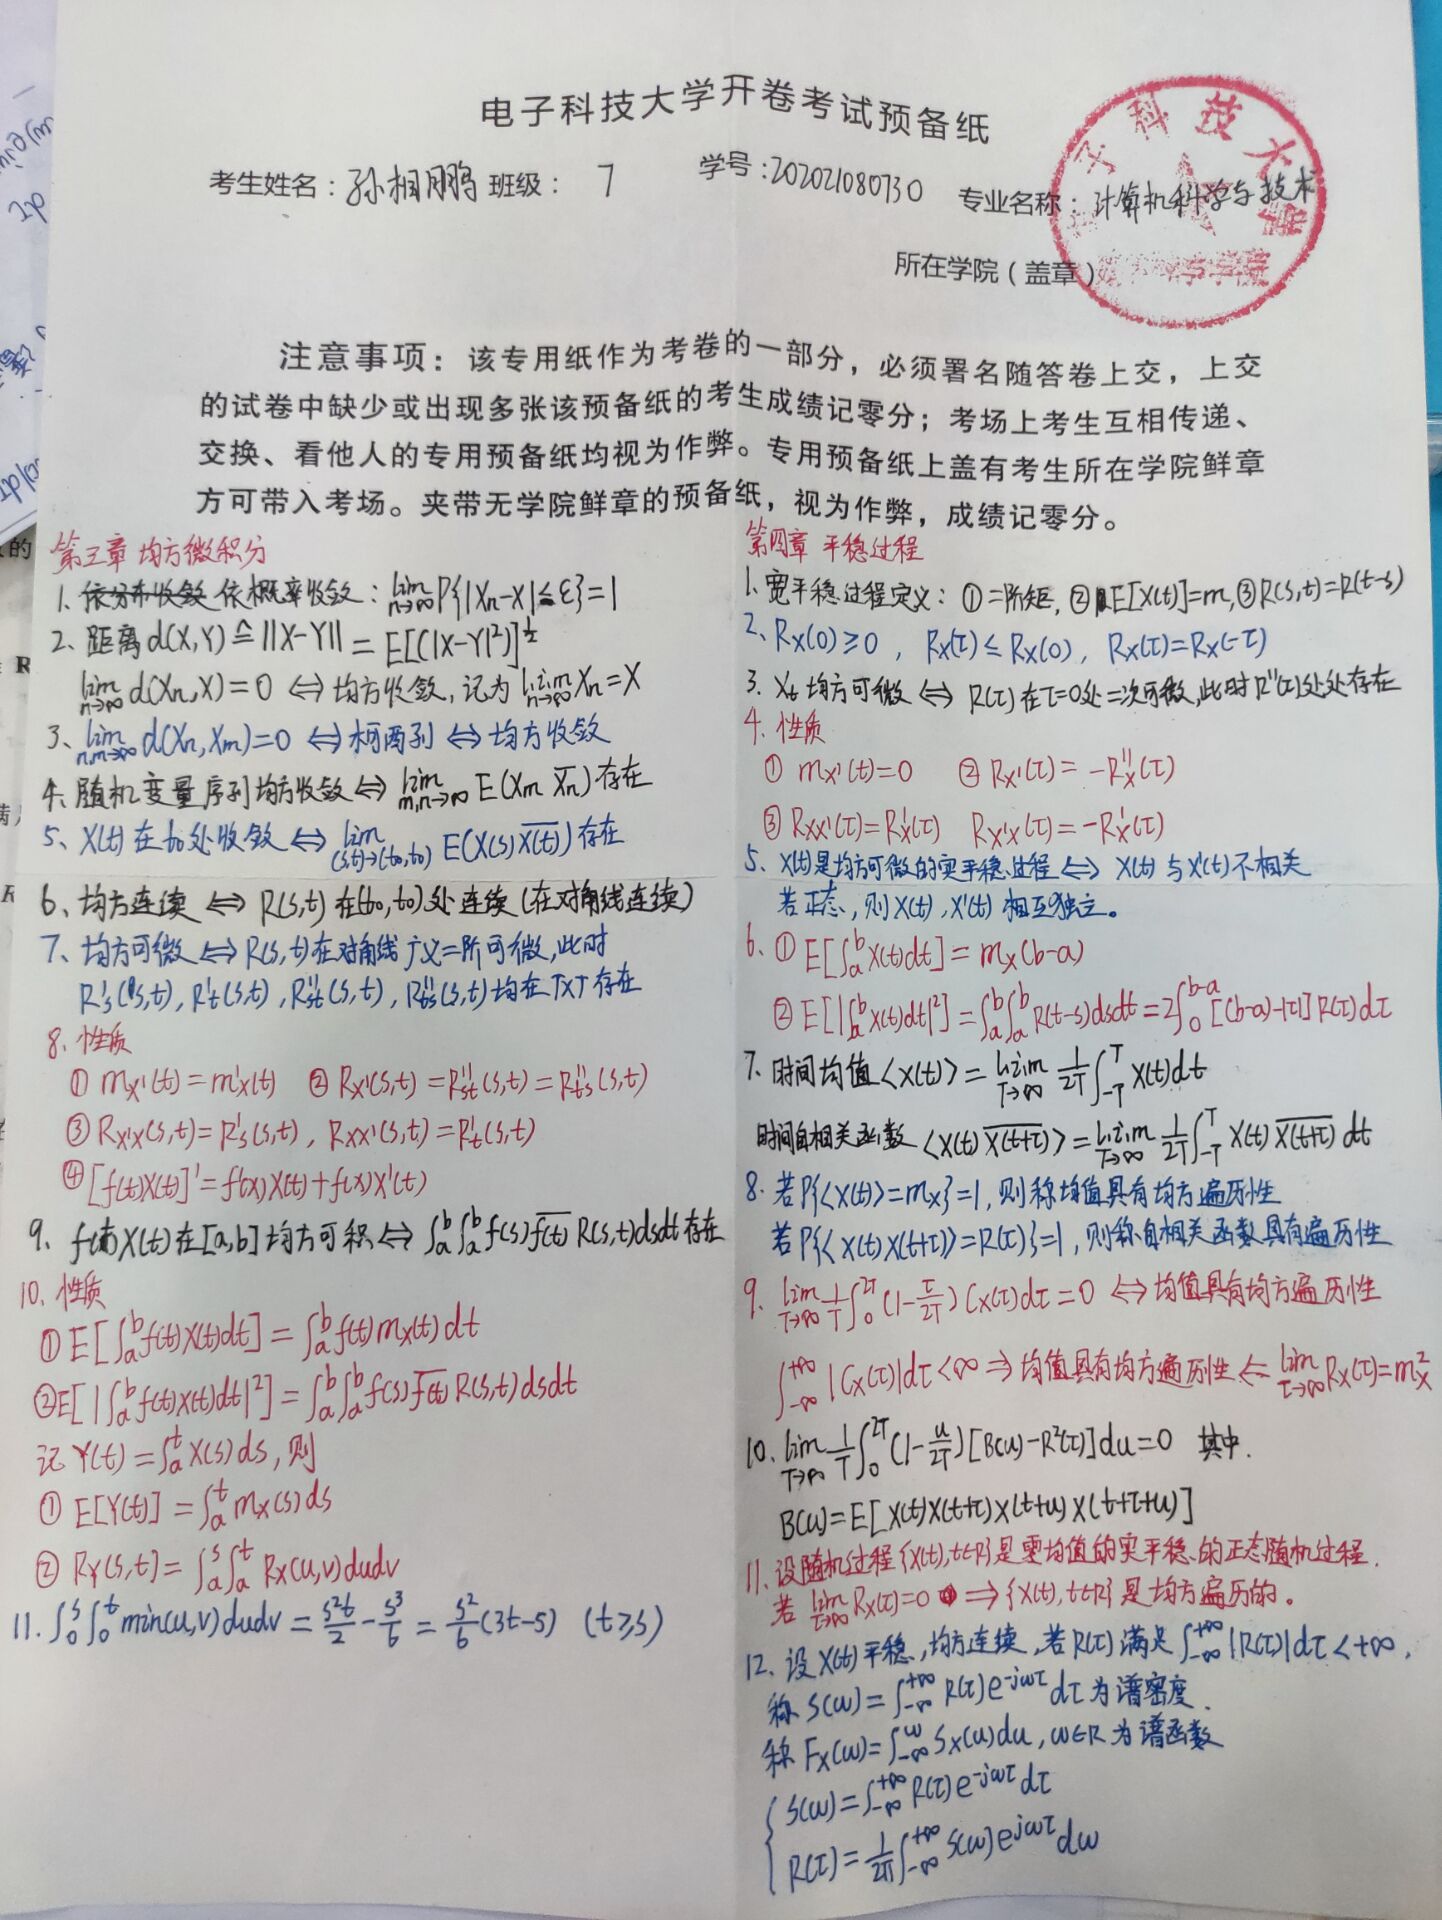 电子科技大学开卷考试预备纸
考生姓名：孙相鹏 班级：7 学号：202021080730 专业名称：计算机科学与技术
所在学院（盖章）
注意事项：该专用纸作为考卷的一部分，必须署名随答卷上交，上交
的试卷中缺少或出现多张该预备纸的考生成绩记零分；考场上考生互相传递、
交换、看他人的专用预备纸均视为作弊。专用预备纸上盖有考生所在学院鲜章
方可带入考场。夹带无学院鲜章的预备纸，视为作弊，成绩记零分。
第三章 均方微积分
1. 依分布收敛 依概率收敛：lim n→∞ P{|Xn-X|≤ε}=1
2. 距离d(X,Y)≙||X-Y||=E[(|X-Y|²)]^½
lim n→∞ d(Xn,X)=0 ⇔ 均方收敛，记为 l.i.m n→∞ Xn=X
3、lim n,m→∞ d(Xn,Xm)=0 ⇔ 柯西列 ⇔ 均方收敛
4. 随机变量序列均方收敛 ⇔ lim m,n→∞ E(Xm X̅n̅)存在
5、X(t)在t0处收敛 ⇔ lim (s,t)→(t0,t0) E(X(s)X̅(̅t̅)̅)存在
6、均方连续 ⇔ R(s,t)在(t0,t0)处连续(在对角线连续)
7、均方可微 ⇔ R(s,t)在对角线广义二阶可微，此时
R's(s,t), R't(s,t), R''st(s,t), R''ts(s,t)均在T×T存在
8. 性质
① mX'(t)=m'X(t) ② RX'(s,t)=R''st(s,t)=R''ts(s,t)
③ RX'X(s,t)=R's(s,t), RXX'(s,t)=R't(s,t)
④ [f(t)X(t)]'=f'(x)X(t)+f(x)X'(t)
9. f(t)X(t)在[a,b]均方可积 ⇔ ∫ₐᵇ∫ₐᵇ f(s)f̅(̅t̅)̅ R(s,t)dsdt存在
10. 性质
① E[∫ₐᵇf(t)X(t)dt]=∫ₐᵇf(t)mX(t)dt
② E[|∫ₐᵇf(t)X(t)dt|²]=∫ₐᵇ∫ₐᵇf(s)f̅(̅t̅)̅ R(s,t)dsdt
记Y(t)=∫ₐᵗX(s)ds, 则
① E[Y(t)]=∫ₐᵗmX(s)ds
② RY(s,t)=∫ₐˢ∫ₐᵗ RX(u,v)dudv
11. ∫₀ˢ∫₀ᵗmin(u,v)dudv=s²t/2-s³/6=s²/6(3t-s) (t≥s)
第四章 平稳过程
1. 宽平稳过程定义：①二阶矩, ②E[X(t)]=m, ③R(s,t)=R(t-s)
2、RX(0)≥0, RX(τ)≤RX(0), RX(τ)=RX(-τ)
3. Xt均方可微 ⇔ R(τ)在τ=0处二次可微，此时R''(τ)处处存在
4. 性质
① mX'(t)=0 ② RX'(τ)=-R''X(τ)
③ RXX'(τ)=R'X(τ) RX'X(τ)=-R'X(τ)
5. X(t)是均方可微的实平稳过程 ⇔ X(t)与X'(t)不相关
若正态，则X(t), X'(t)相互独立。
6. ① E[∫ₐᵇX(t)dt]=mX(b-a)
② E[|∫ₐᵇX(t)dt|²]=∫ₐᵇ∫ₐᵇR(t-s)dsdt=2∫₀ᵇ⁻ᵃ[(b-a)-|τ|]R(τ)dτ
7. 时间均值<X(t)>=l.i.m T→∞ 1/2T ∫₋Tᵀ X(t)dt
时间自相关函数<X(t)X̅(̅t̅+̅τ̅)̅>=l.i.m T→∞ 1/2T ∫₋Tᵀ X(t)X̅(̅t̅+̅τ̅)̅dt
8. 若P{<X(t)>=mX}=1, 则称均值具有均方遍历性
若P{<X(t)X(t+τ)>=R(τ)}=1, 则称自相关函数具有遍历性
9. lim T→∞ 1/T ∫₀²ᵀ(1-τ/2T)CX(τ)dτ=0 ⇔ 均值具有均方遍历性
∫₋∞⁺∞|CX(τ)|dτ<∞ ⇒ 均值具有均方遍历性 ⇐ lim τ→∞ RX(τ)=m²X
10. lim T→∞ 1/T ∫₀²ᵀ(1-u/2T)[B(u)-R²(τ)]du=0 其中.
B(u)=E[X(t)X(t+τ)X(t+u)X(t+τ+u)]
11. 设随机过程{X(t),t∈R}是零均值的实平稳的正态随机过程.
若 lim τ→∞ RX(τ)=0 ⇒ {X(t),t∈R}是均方遍历的。
12. 设X(t)平稳, 均方连续, 若R(τ)满足∫₋∞⁺∞|R(τ)|dτ<+∞,
称S(ω)=∫₋∞⁺∞ R(τ)e^-jωτ dτ为谱密度.
称FX(ω)=∫₋∞^ω SX(u)du, ω∈R为谱函数
S(ω)=∫₋∞⁺∞ R(τ)e^-jωτ dτ
R(τ)=1/2π ∫₋∞⁺∞ S(ω)e^jωτ dω